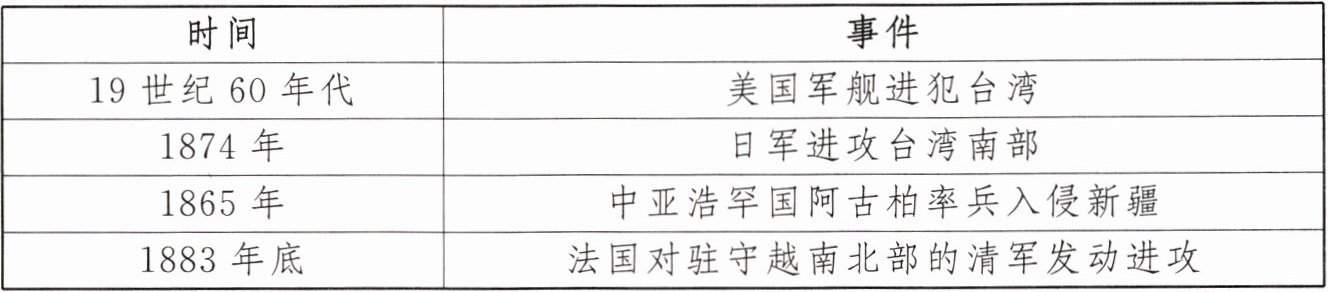 时间 事件
19世纪60年代 美国军舰进犯台湾
1874年 日军进攻台湾南部
1865年 中亚浩罕国阿古柏率兵入侵新疆
1883年底 法国对驻守越南北部的清军发动进攻